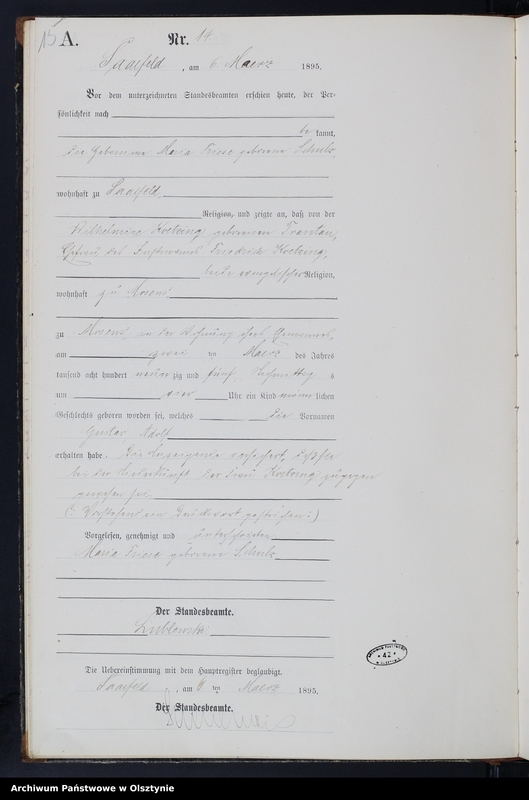 15 A. Nr. 14
Saalfeld, am 6 Maerz 1895.
Vor dem unterzeichneten Standesbeamten erschien heute, der Per-
sönlichkeit nach
be kannt,
die Hebamme Maria Friese geborene Schulz
wohnhaft zu Saalfeld,
Religion, und zeigte an, daß von der
Wilhelmine geborenen
Ehefrau des Friedrich
beide evangelischer Religion,
wohnhaft zu
zu in der Wohnung ihres Ehemannes,
am zwei ten Maerz des Jahres
tausend acht hundert neun zig und fünf, Nachmittag s
um vier Uhr ein Kind männ lichen
Geschlechts geboren worden sei, welches die Vornamen
Gustav Adolf
erhalten habe. Die Anzeigende versichert, daß sie
bei der Niederkunft der Frau zugegen
gewesen sei.
(: Vorstehend ein Druckwort gestrichen :)
Vorgelesen, genehmigt und unterschrieben
Maria Friese geborene Schulz
Der Standesbeamte.
Die Uebereinstimmung mit dem Hauptregister beglaubigt.
Saalfeld, am 6 ten Maerz 1895.
Der Standesbeamte.
42
Archiwum Państwowe w Olsztynie